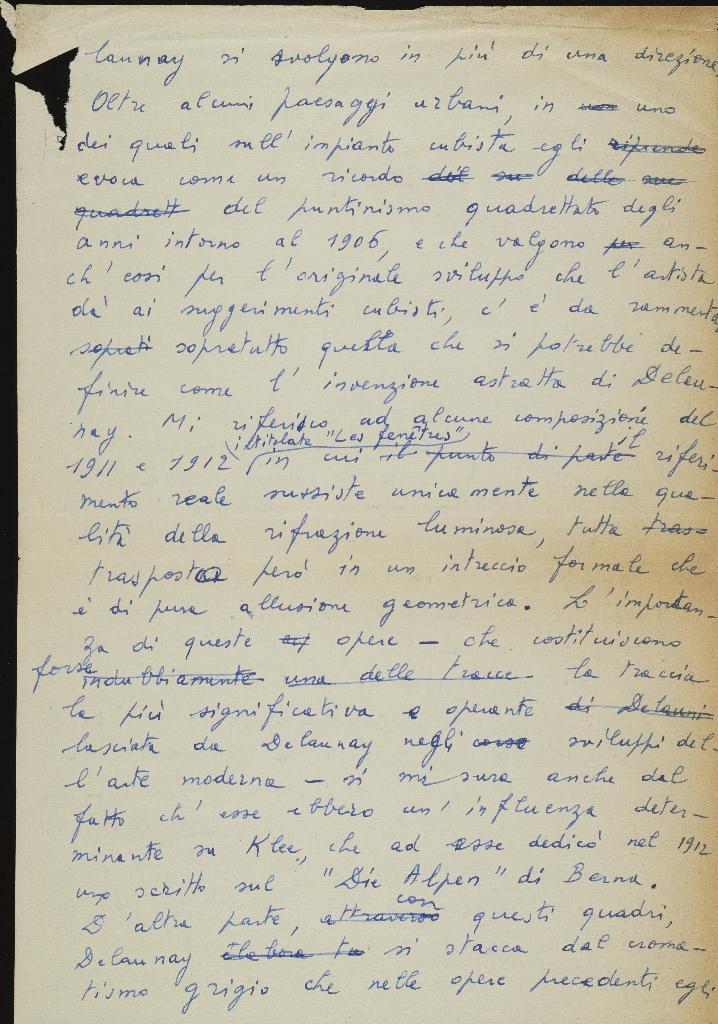 launay si svolgono in più di una direzione
Oltre alcuni paesaggi urbani, in uno
dei quali sull'impianto cubista egli riprende
evoca come un ricordo del su delle sue
quadrett del puntinismo quadrettato degli
anni intorno al 1906, e che valgono per an-
ch'così per l'originale sviluppo che l'artista
dà ai suggerimenti cubisti, c'è da rammenta
sopratt sopratutto quella che si potrebbe de-
finire come l'invenzione astratta di Delau-
nay. Mi riferisco ad alcune composizione del
intitolate "Les fenêtres"
1911 e 1912 in cui il punto di parte il riferi-
mento reale sussiste unicamente nella qua-
lità della rifrazione luminosa, tutta tras-
trasposta però in un intreccio formale che
è di pura allusione geometrica. L'importan-
za di queste opere — che costituiscono
forse
indubbiamente una delle tracce la traccia
la più significativa e operante di Delauni
lasciata da Delaunay negli sviluppi del-
l'arte moderna — si misura anche dal
fatto ch'esse ebbero un'influenza deter-
minante su Klee, che ad esse dedicò nel 1912
uno scritto sul "Die Alpen" di Berna.
con
D'altra parte, attraverso questi quadri,
Delaunay elabora tu si stacca dal croma-
tismo grigio che nelle opere precedenti egli